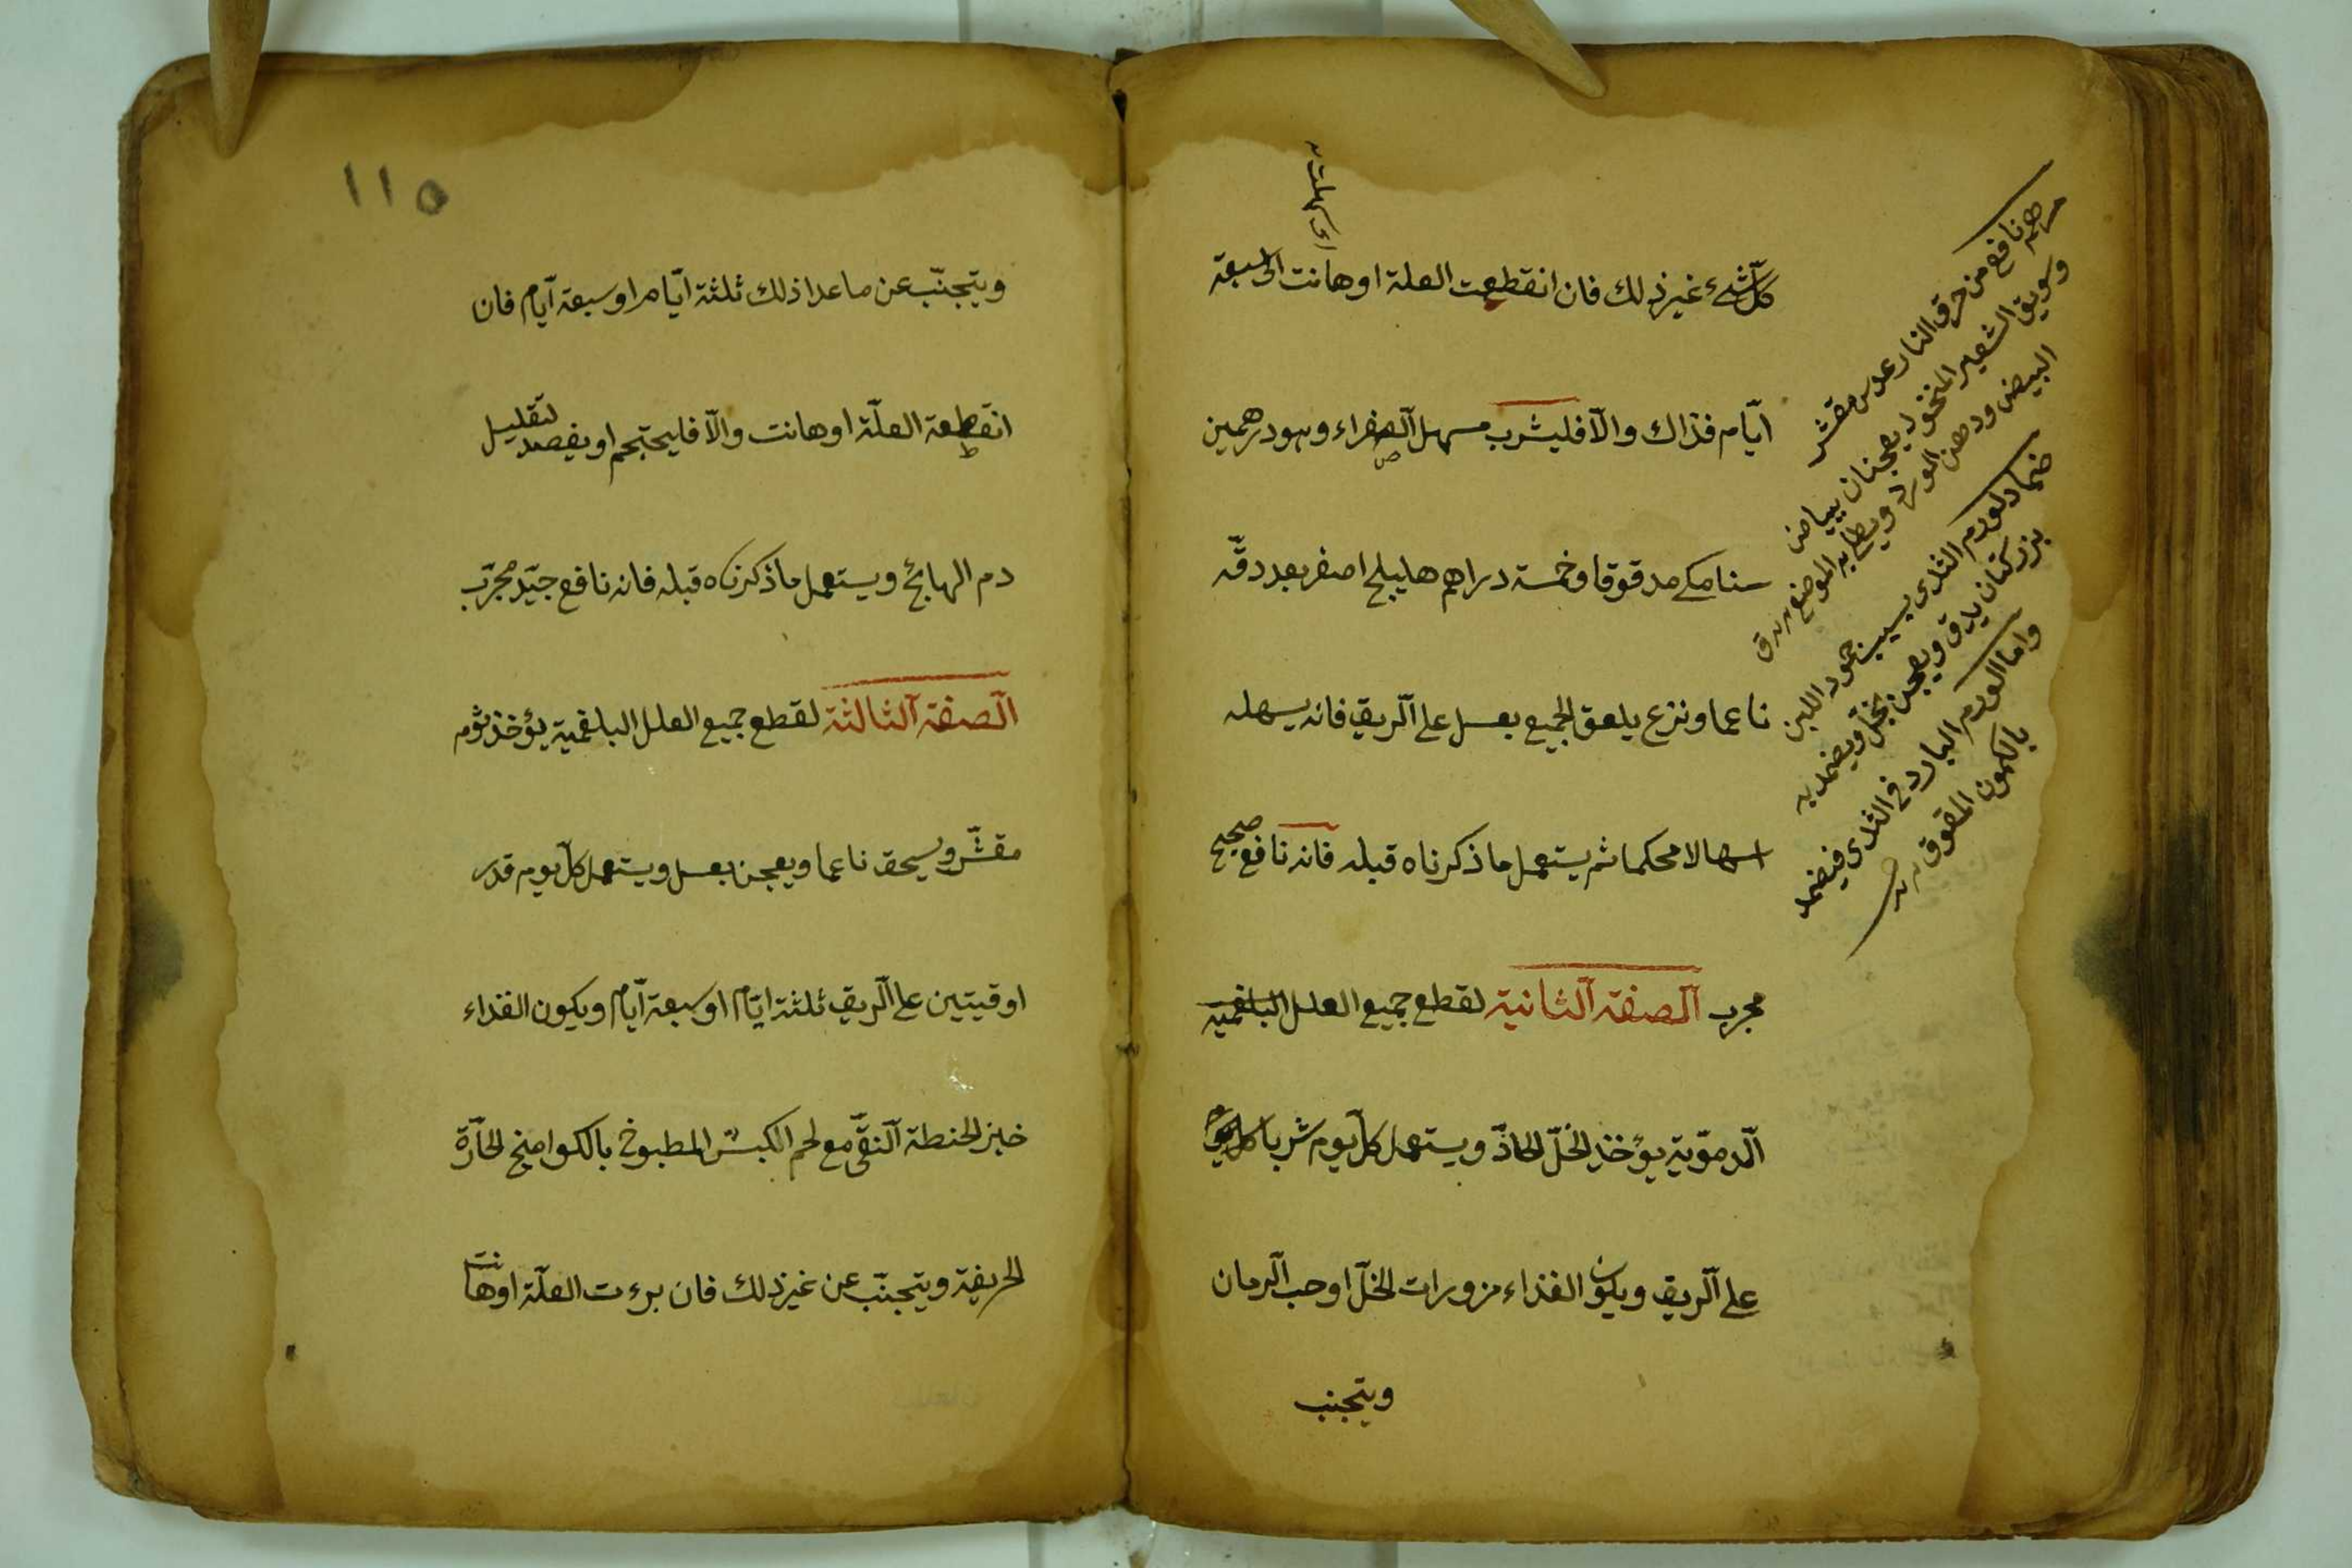 كل شيء غير ذلك فان انقطعت العلة او هانت الى سبعة
ايّام فذاك والّا فليشرب مسهل الصفراء وهو درهمين
سنامكي مدقوقا وخمسة دراهم هليلج اصفر بعد دقّه
ناعما ونزع يلعق الجميع بعسل على الّريق فانه يسهله
اسهالا محكما ثم يستعمل ما ذكرناه قبله فانه نافع صحيح
مجرب الصفة الثانية لقطع جميع العلل البلغمية
الّدمّوية يؤخذ الخلّ الحاذّ ويستعمل كل يوم شربا
على الّريق ويكون الغذاء مزورات الخلّ او حب الّرمان
ويتجنب
مرهم نافع من حرق النار عدس مقشر
وسويق الشعير المنخول يعجنان ببياض
البيض ودهن الورد ويطلى به الموضع
ضماد لورم الثدى بسبب جمود اللبن
بزر كتان يدق ويعجن بخل ويضمد به
واما الورم البارد فى الثدى فيضمد
بالكمون المدقوق
١١٥
ويتجنّب عن ما عدا ذلك ثلثة ايّام او سبعة ايّام فان
انقطعة العلّة او هانت والّا فليحتجم او يفصد لتقليل
دم الهايج ويستعمل ما ذكرناه قبله فانه نافع جيّد مجرّب
الصفة الثالثة لقطع جميع العلل البلغمية يؤخذ ثوم
مقشّر ويسحق ناعما ويعجن بعسل ويستعمل كل يوم قدر
اوقيتين على الّريق ثلثة ايّام او سبعة ايّام ويكون الغذاء
خبز الحنطة النقّى مع لحم الكبش المطبوخ بالكوامخ الحارّة
الحريفة ويتجنّب عن غير ذلك فان برءت العلّة او هانت